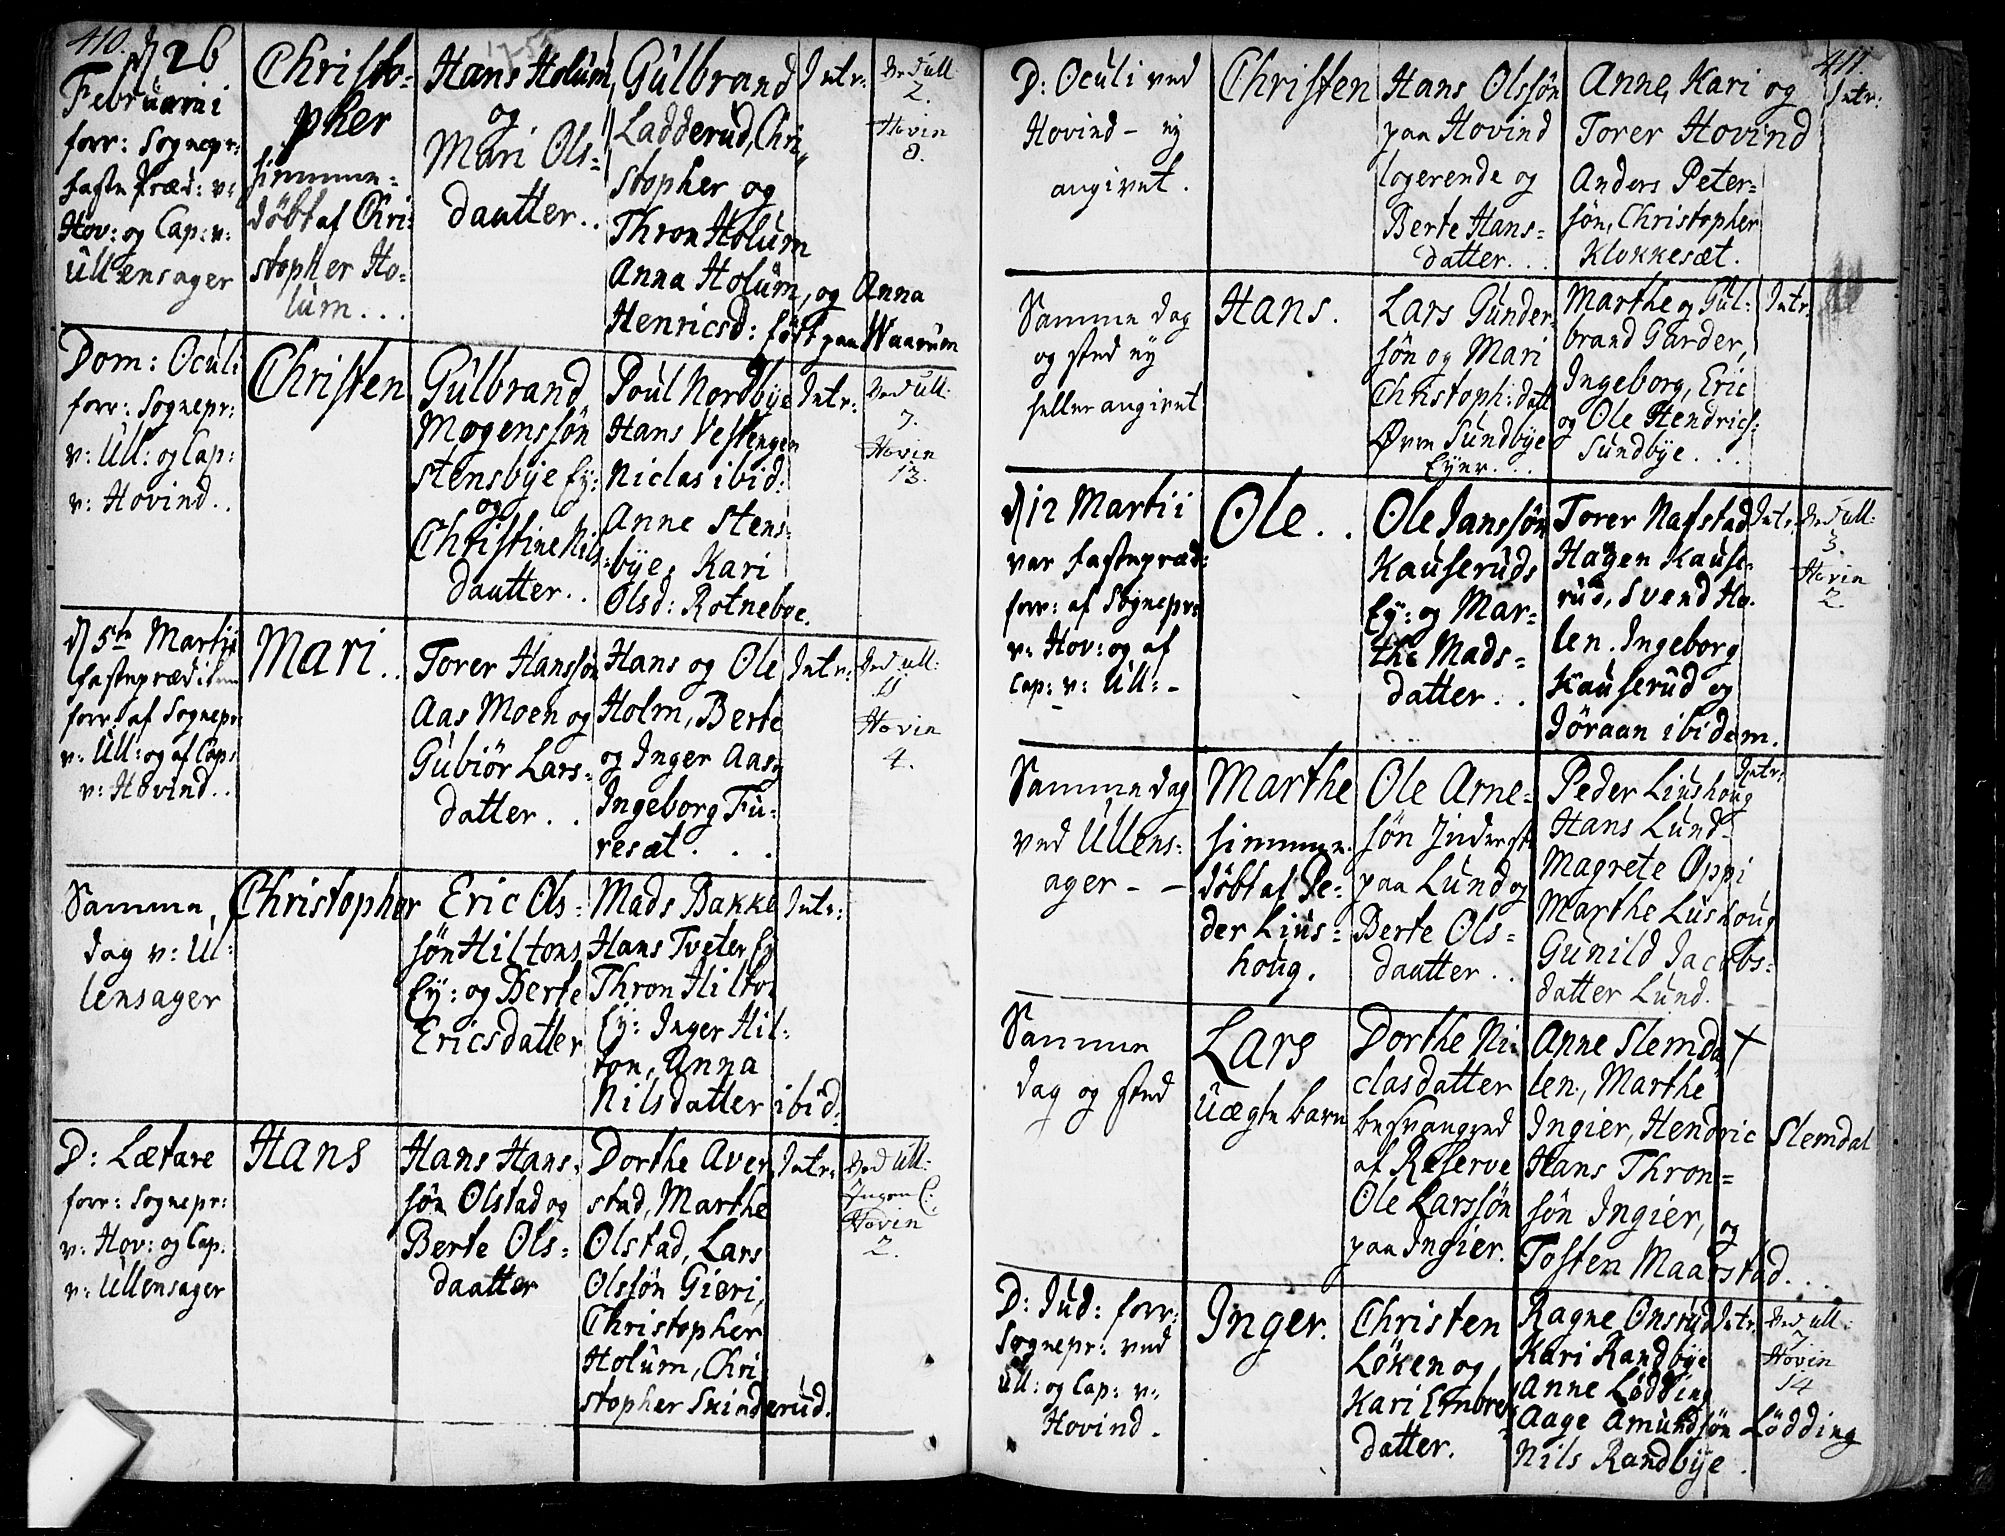 410.
d 26
Februarii
forr: Sognepr:
faste Præd: v:
Hov: og Cap: v:
Ullensager
Christo=
pher
hiemme=
døbt af Chri=
stopher Ho=
lum...
Hans Holum
og
Mari Ols=
daatter..
Gulbrand
Ladderud, Chri
stopher og
Thron Holum
Anna Holum, og Anna
Henricsd: født paa Waarum
Intr:
Ved Ull:
2.
Hovin
8.
Dom: Oculi
forr: Sognepr:
v: Ull: og Cap:
v: Hovind..
Christen
Gulbrand
Mogenssøn
Stensbye Ey:
og
Christine Nils
daatter..
Poul Nordbye
Hans Vestengen
Niclas ibid:
Anne Stens=
bye, Kari
Olsd: Rotneboe.
Intr:
Ved Ull:
7.
Hovin
13.
d 5te Martii
fasteprædiken
forr: af Sognepr:
v: Ull: og af Cap:
v: Hovind..
Mari..
Torer Hanssøn
Aas Moen og
Gubiør Lars=
datter..
Hans og Ole
Holm, Berte
og Inger Aas,
Ingeborg Fu=
resæt...
Intr:
Ved Ull:
11
Hovin
4.
Samme
dag v: Ul=
lensager
Christopher
Eric Ols=
søn Hiltons
Ey: og Berte
Ericsdatter
Mads Bakke
Hans Tveter, Ey
Thron Hilton
Ey: Inger Hil=
ton, Anna
Nilsdatter ibid:
Intr:
D: Lætare
forr: Sognepr:
v: Hov: og Cap:
v: Ullensager
Hans
Hans Hans=
søn Olstad og
Berte Ols=
daatter
Dorthe Aver
stad, Marthe
Olstad, Lars
Olssøn Gieri,
Christopher
Holum, Chri
stopher Skinderud.
Intr:
Ved Ull:
Ingen C:
Hovin
2.
411.
D: Oculi ved
Hovind - ny
angivet.
Christen
Hans Olssøn
paa Hovind
logerende og
Berte Hans=
datter...
Anne, Kari og
Torer Hovind
Anders Peter=
søn, Christopher
Klokkesæt.
Intr:
Samme dag
og sted ny
heller angivet
Hans.
Lars Gunder=
søn og Mari
Christoph: datt
Øvre Sundbye
Eyer...
Marthe og Gul=
brand Garder,
Ingeborg, Eric
og Ole Hendrics:
Sundbye...
Intr:
d 12 Martii
var fastepræd:
forr: af Sognepr:
v: Hov: og af
Cap: v: Ull: -
Ole..
Ole Janssøn
Kauseruds
Ey: og Mar=
the Mads=
datter..
Torer Nafstad
Hagen Kause=
rud, Svend Ho=
len, Ingeborg
Kauserud og
Jøraan ibidem.
Intr:
Ved Ull:
3.
Hovin
2.
Samme dag
ved Ullens=
ager - -
Marthe
hiemme
døbt af Pe=
der Lius=
houg.
Ole Arne=
søn Inderst
paa Lund og
Berte Ols=
daatter..
Peder Liushoug
Hans Lund
Magrete Oppi
Marthe Lushoug
Gunild Jacobs=
datter Lund.
Intr:
Samme
dag og sted
Lars
Uægte barn
Dorthe Ni=
clasdatter
besvangred
af Reserve
Ole Larssøn
paa Ingier.
Anne Slemda
len, Marthe
Ingier, Hendric Slemdal
Hans Thron=
søn Ingier, og
Tosten Maarstad...
D: Jud: forr:
Sognepr: ved
Ull: og Cap: v:
Hovind.
Inger.
Christen
Løken og
Kari Embret
datter.
Ragne Onstud
Kari Randbye
Anne Lødding
Aage Amundsøn Lødding
Nils Randbye.
Intr.
Ved Ull:
7
Hovin
14